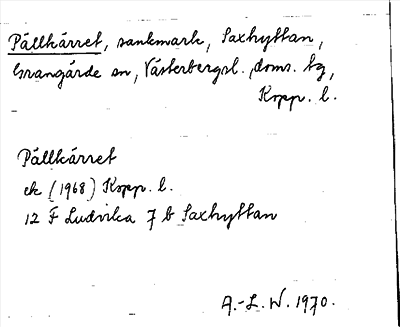 Pällkärret, sankmark, Saxhyttan,
Grangärde sn, Västerbergsl. doms. tg,
Kopp. l.
Pällkärret
ek (1968) Kopp. l.
12 F Ludvika 7 b Saxhyttan
A.-L. W. 1970.